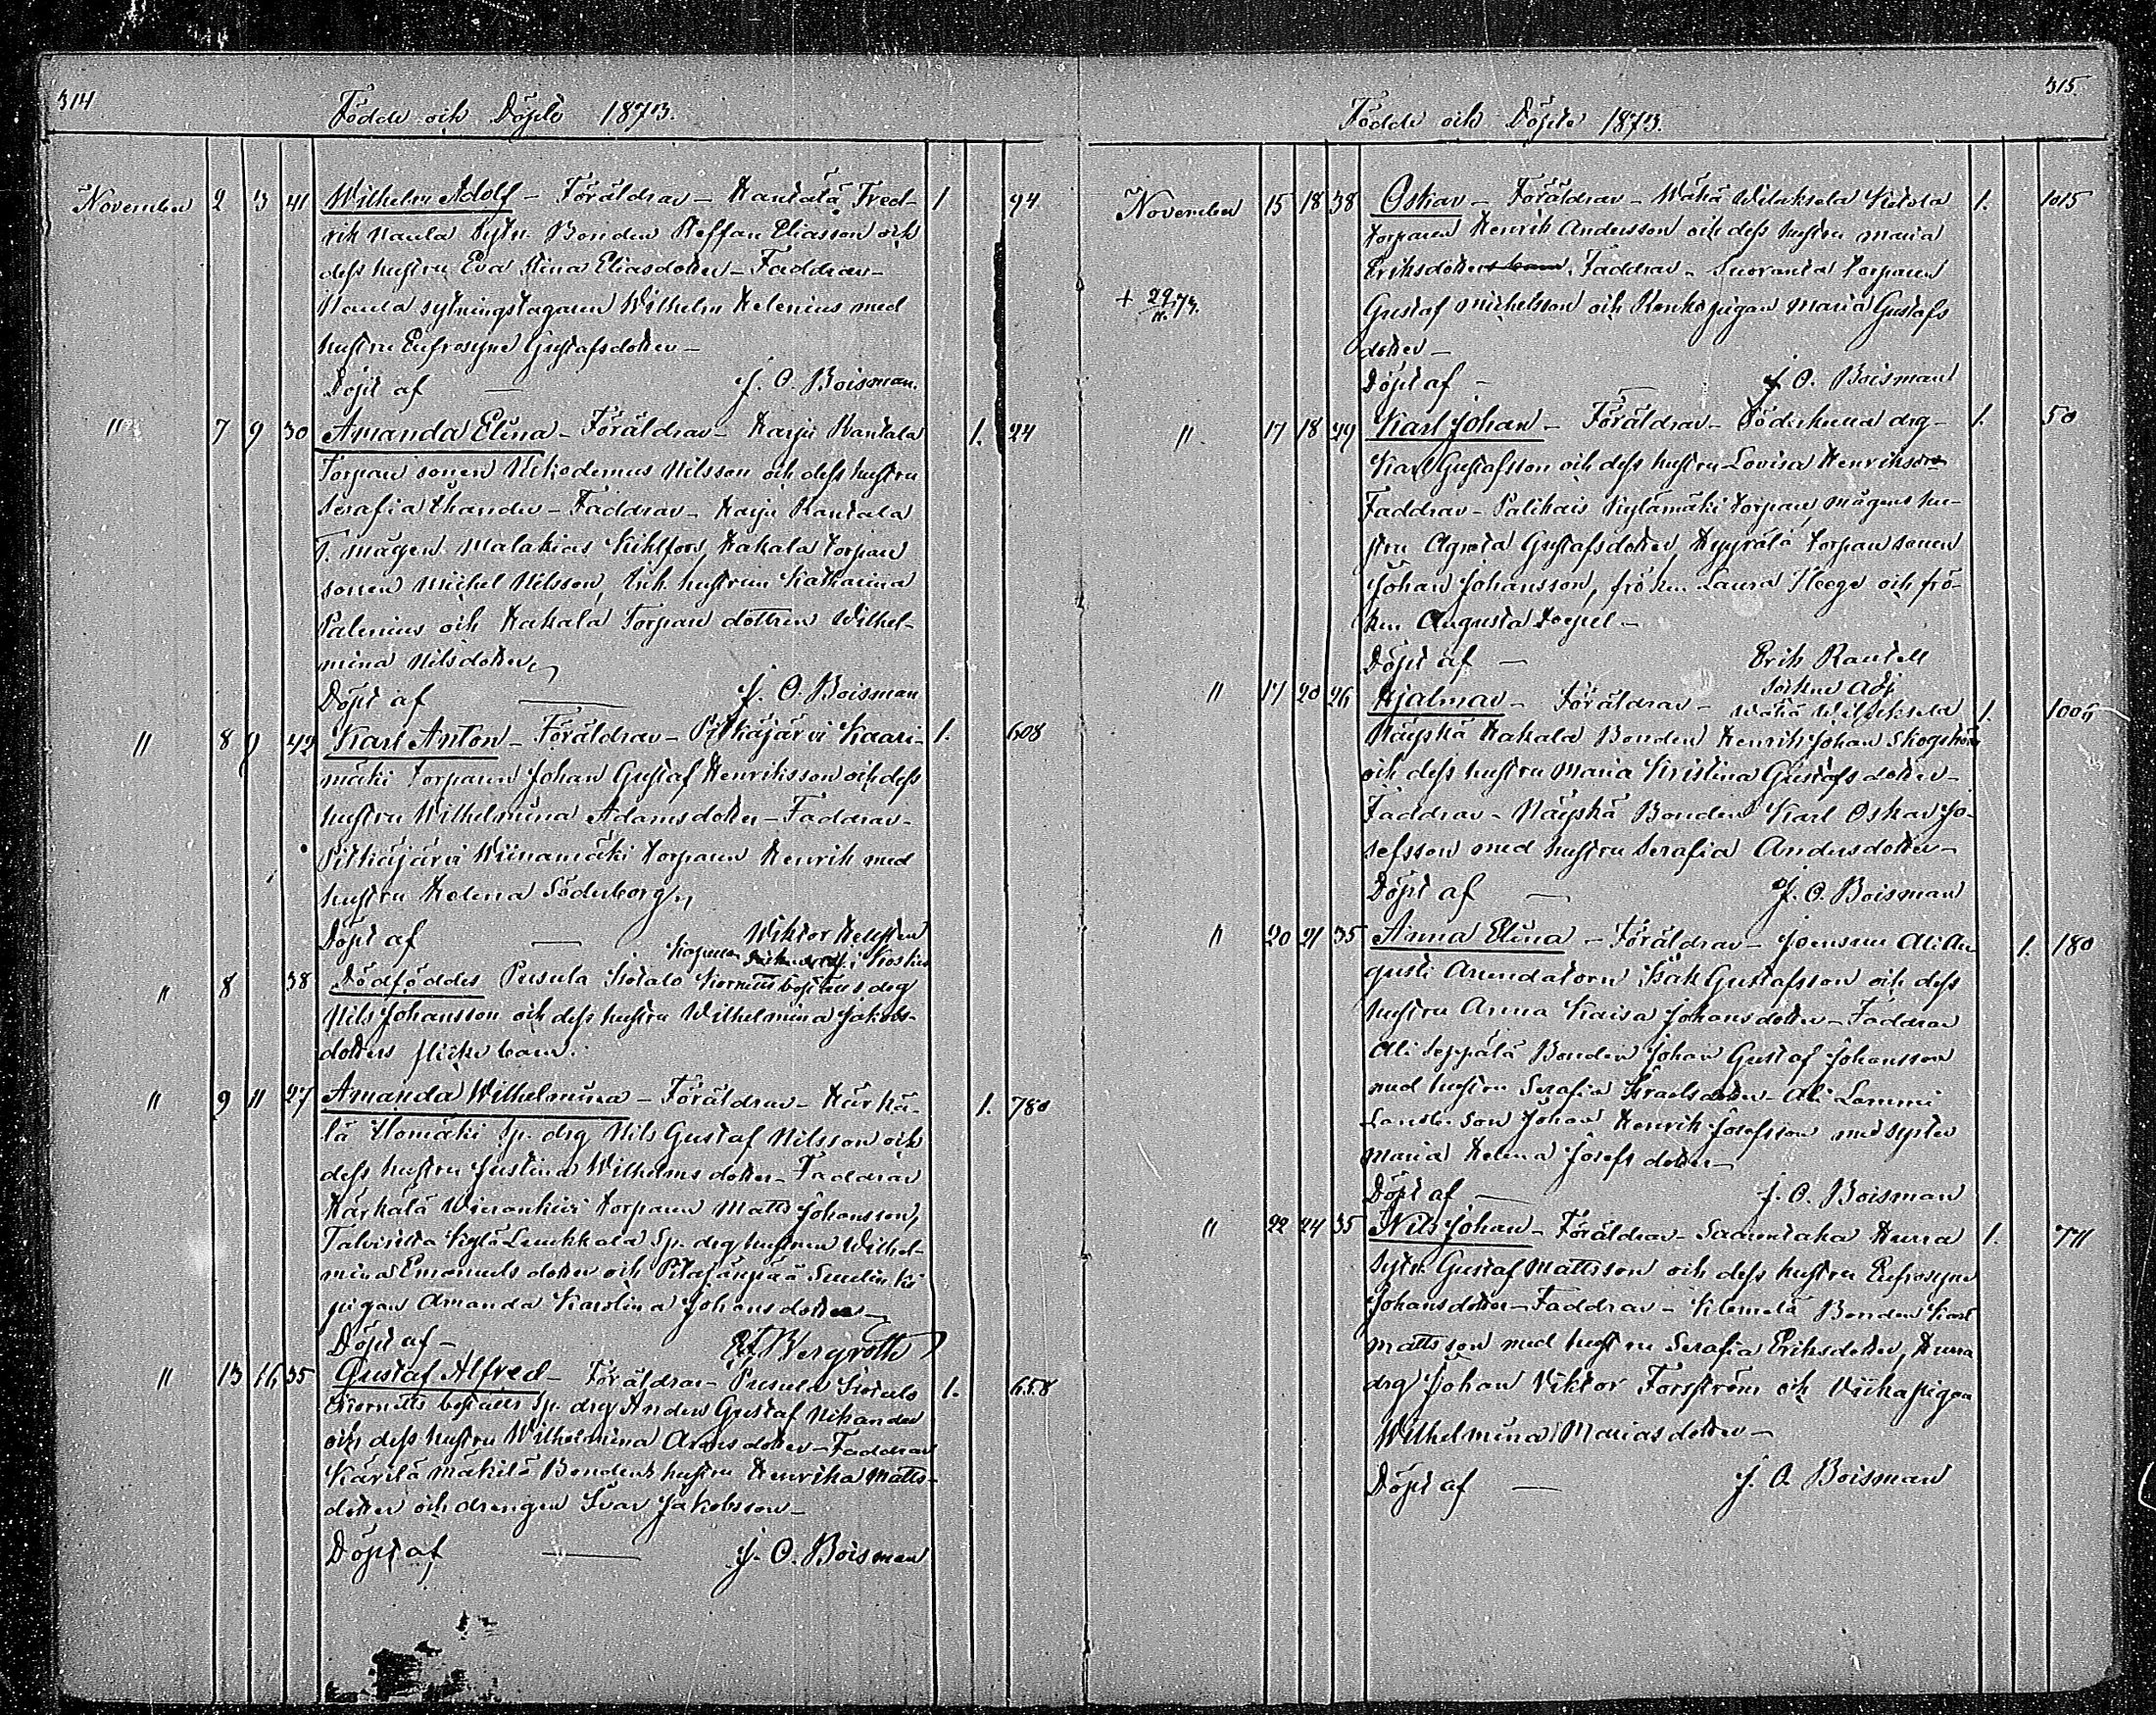 314
Födde och Döpte 1873.
November 2 3 41 Wilhelm Adolf – Föräldrar – Fred- 1 94
rik Naula Sytn. Bonden Steffan Eliasson och
dess hustru Eva Stina Eliasdotter – Faddrar –
Naula sytningstagaren Wilhelm Helenius med
hustru Eufrosyne Gustafsdotter –
Döpt af — J. O. Boisman.
" 7 9 30 Amanda Elina – Föräldrar – Harju Rantala 1. 24
Torpare sonen Nikodemus Nilsson och dess hustru
Serafia Thander – Faddrar – Harju Rantala
T. mågen Malakias Kihlfors, Hakala torpare
sonen Michel Nilsson, Enk. hustrun Katharina
Palenius och Hakala Torpare dottren Wilhel-
mina Nilsdotter
Döpt af — J. O. Boisman
" 8 9 42 Karl Anton – Föräldrar – Pitkäjärvi Kaari- 1. 608
mäki torparen Johan Gustaf Henriksson och dess
hustru Wilhelmina Adamsdotter – Faddrar –
Pitkäjärvi Wiinamäki torparen Henrik med
hustru Helena Söderborg
Döpt af — Wiktor Hellsten
Kapellan i Koskis
" 8 38 Dödföddes Pusula Isotalo Kornetts boställs drg
Nils Johansson och dess hustru Wilhelmina Jakobs-
dotters flicke barn.
" 9 11 27 Amanda Wilhelmina – Föräldrar – Härkä- 1. 780
lä Ilomäki Sp. drg Nils Gustaf Nilsson och
dess hustru Justina Wilhelmsdotter – Faddrar
Härkälä torparen Matts Johansson,
Talvisilta Sp. drg hustrun Wilhel-
mina Emanuels dotter och
pigan Amanda Karolina Johansdotter –
Döpt af – Bergroth
" 13 16 35 Gustaf Alfred – Föräldrar – Pusula Isotalo 1. 658
Kornetts boställs Sp. drg Anders Gustaf Nikander
och dess hustru Wilhelmina dotter – Faddrar
Kärilä Mäkilä Bondens hustru Henrika Matts-
dotter och drengen Ivar Jakobsson –
Döpt af — J. O. Boisman
315
Födde och Döpte 1873.
November 15 18 38 Oskar – Föräldrar – Wähä Wiluksela Ketola 1. 1015
torparen Henrik Andersson och dess hustru Maria
Eriksdotter Faddrar – Suoranta torparen
+ 29/11.73. Gustaf Michelsson och pigan Maria Gustafs
dotter –
Döpt af – J. O. Boisman
" 17 18 29 Karl Johan – Föräldrar – drg – 1. 50
Karl Gustafsson och dess hustru Lovisa Henriksdr
Faddrar – Palikais Kylämäki torpare mågens hu-
stru Agneta Gustafsdotter, Hyyrälä torpare sonen
Johan Johansson, fröken Laura Heege och frö-
ken Augusta
Döpt af — Erik Rantell
Sockne Adj
" 17 20 26 Hjalmar – Föräldrar – Wähä Wiluksela 1.
Näyskä Hakala Bonden Henrik Johan Skogström
och dess hustru Maria Kristina Gustafsdotter –
Faddrar – Näyskä Bonden Karl Oskar Jo-
sefsson med hustru Serafia Andersdotter –
Döpt af — J. O. Boisman
" 20 21 35 Anna Elina – Föräldrar – Joensuu Ali Au- 1. 180
gusti Arendatorn Isak Gustafsson och dess
hustru Anna Kaisa Johansdotter – Faddrar
Ali Seppälä Bonden Johan Gustaf Johansson
med hustru Serafia Israelsdotter – Ali Lammi
son Johan Henrik Josefsson med syster
Maria Helena Josefsdotter
Döpt af — J. O. Boisman
" 22 24 35 Nils Johan – Föräldrar – Hurra 1. 711
Sytn. Gustaf Mattsson och dess hustru Eufrosyne
Johansdotter – Faddrar – Klemelä Bonden Karl
Mattsson med hustru Serafia Eriksdotter, Hurra
drg Johan Viktor Forsström och pigan
Wilhelmina Mariasdotter –
Döpt af — J. O. Boisman